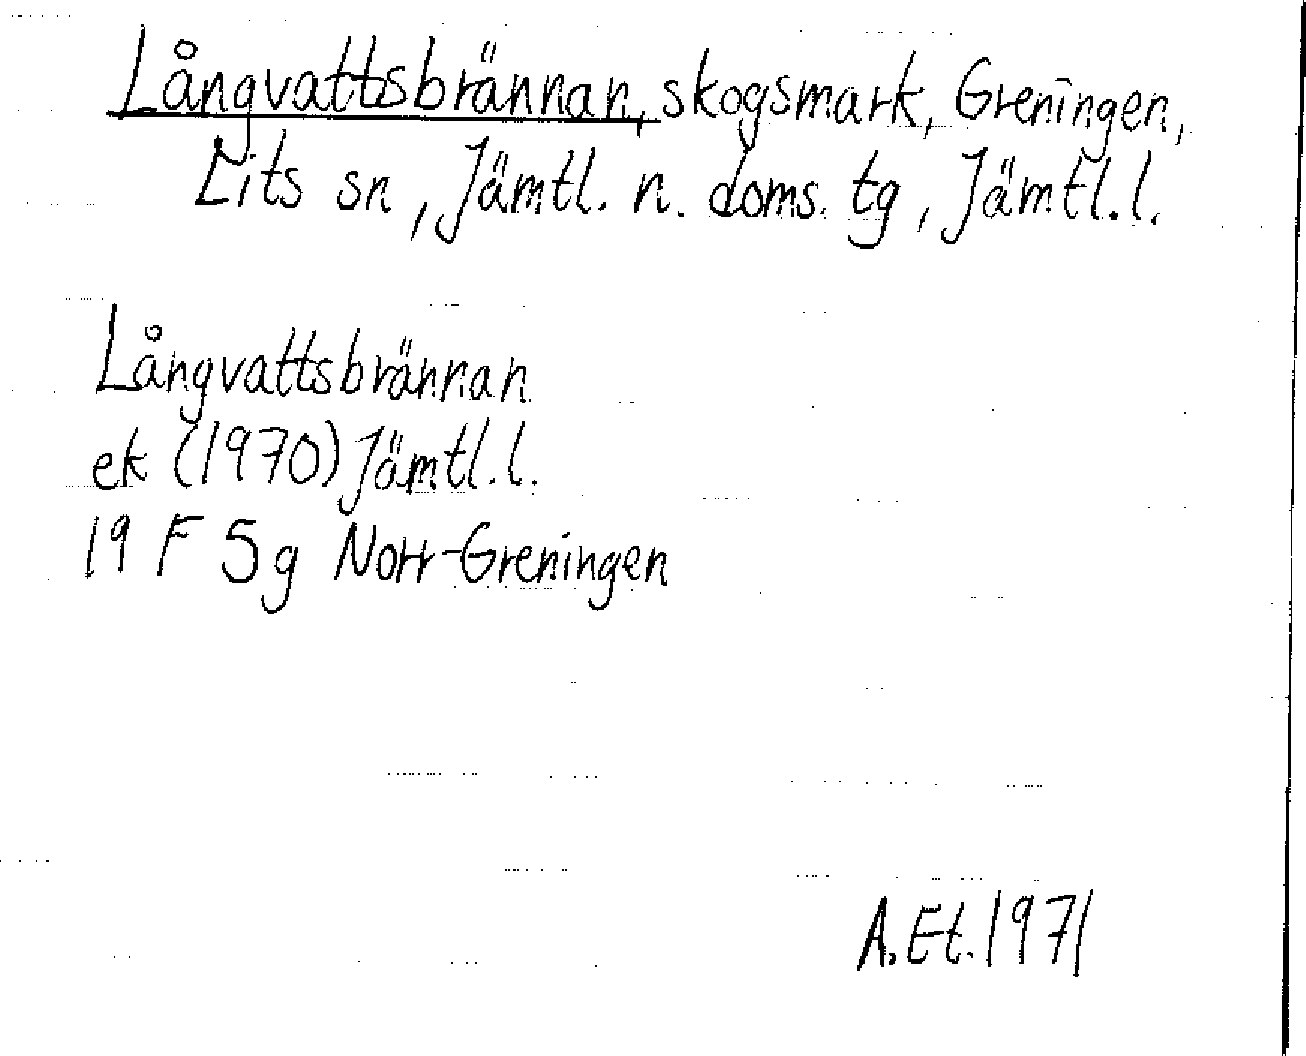 Långvattsbrännan, skogsmark, Greningen,
Lits sn, Jämtl. n. doms. tg, Jämtl. l.
Långvattsbrännan
ek (1970) Jämtl. l.
19 F 5 g Norr-Greningen
A. Et. 1971